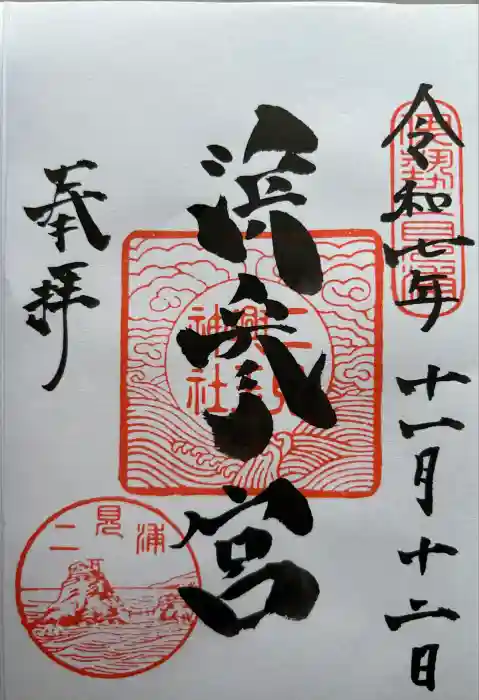 伊勢二見浦
令和七年 十一月 十二日
浜参宮
二見
興玉
神社
奉拝
二見浦